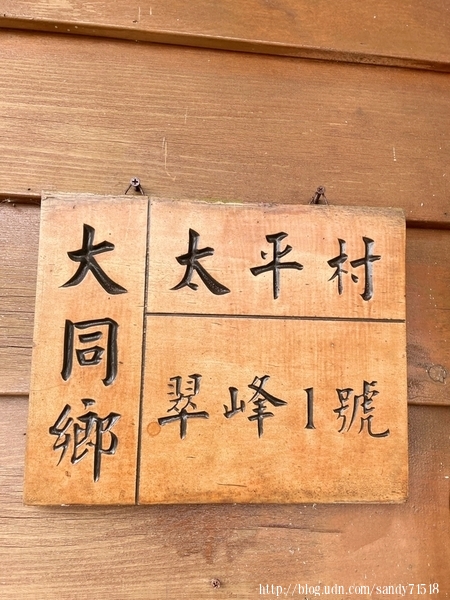 大同鄉
太平村
翠峰1號
http://blog.udn.com/sandy71518